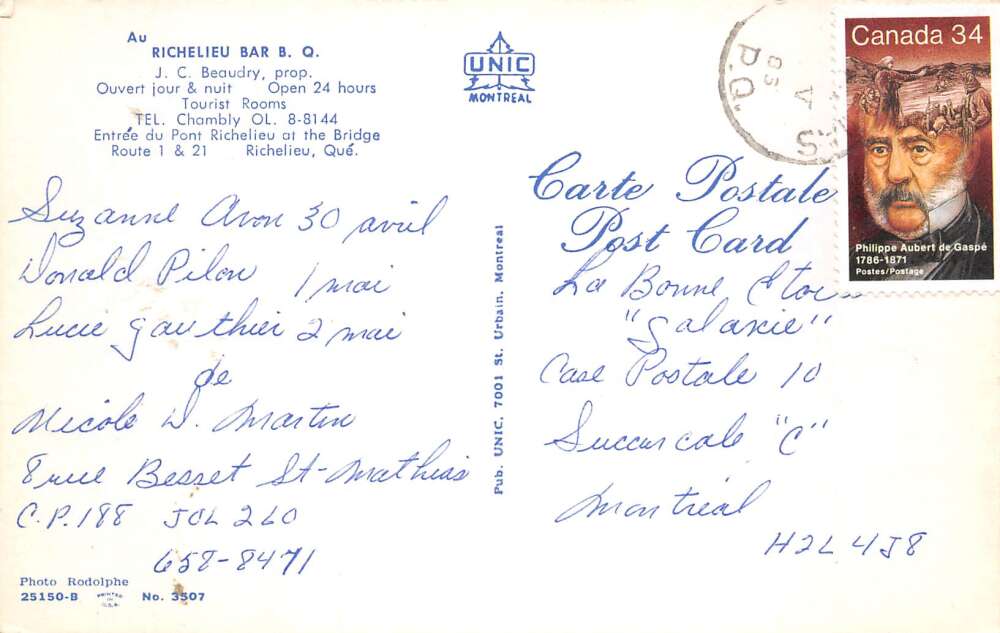 Au
RICHELIEU BAR B. Q.
J. C. Beaudry, prop.
Ouvert jour & nuit Open 24 hours
Tourist Rooms
TEL. Chambly OL. 8-8144
Entrée du Pont Richelieu at the Bridge
Route 1 & 21 Richelieu, Qué.
UNIC
MONTREAL
P.Q.
Canada 34
Philippe Aubert de Gaspé
1786-1871
Postes/Postage
Carte Postale
Post Card
Suzanne Avon 30 avril
Donald Pilon 1 mai
Lucie Gauthier 2 mai
de
Nicole D. Martin
8 rue Besset St-Mathias
C.P. 188 JOL 2L0
658-8471
Pub. UNIC, 7001 St. Urbain, Montreal
La Bonne
"Galaxie"
Case Postale 10
Succursale "C"
Montréal
H2L 4J8
Photo Rodolphe
25150-B PRINTED IN U.S.A. No. 3507